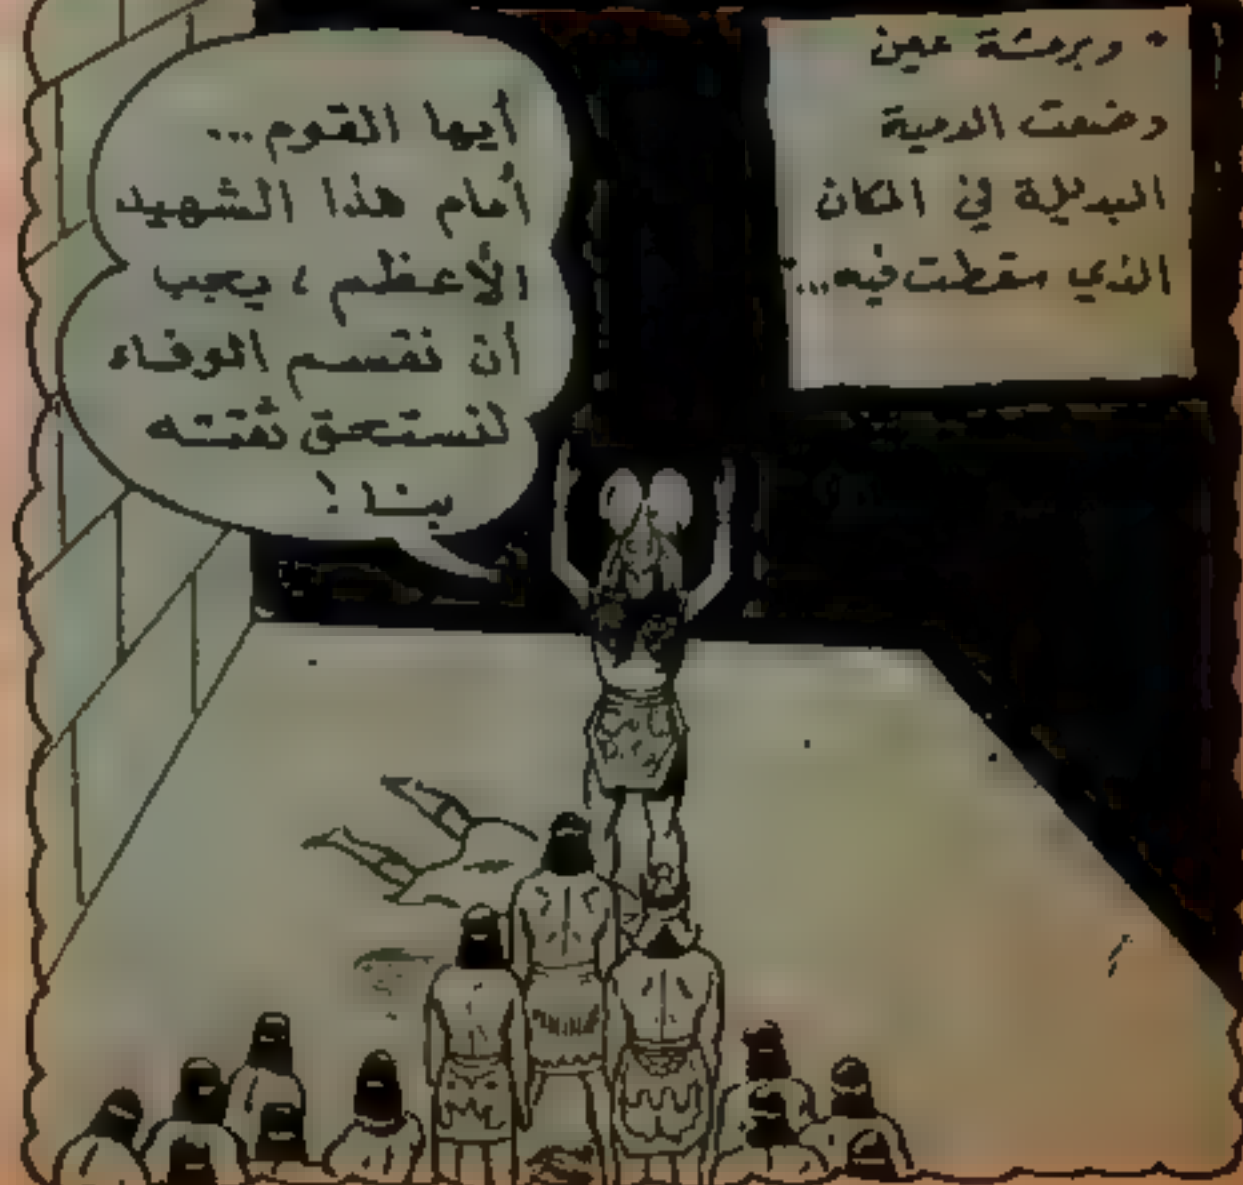 * وبرمشة عين
وضعت الدمية
البديلة في المكان
الذي سقطت فيه...*
أيها القوم...
أمام هذا الشهيد
الأعظم، يجب
أن نقسم الوفاء
لنستحق ثقته
بنا!